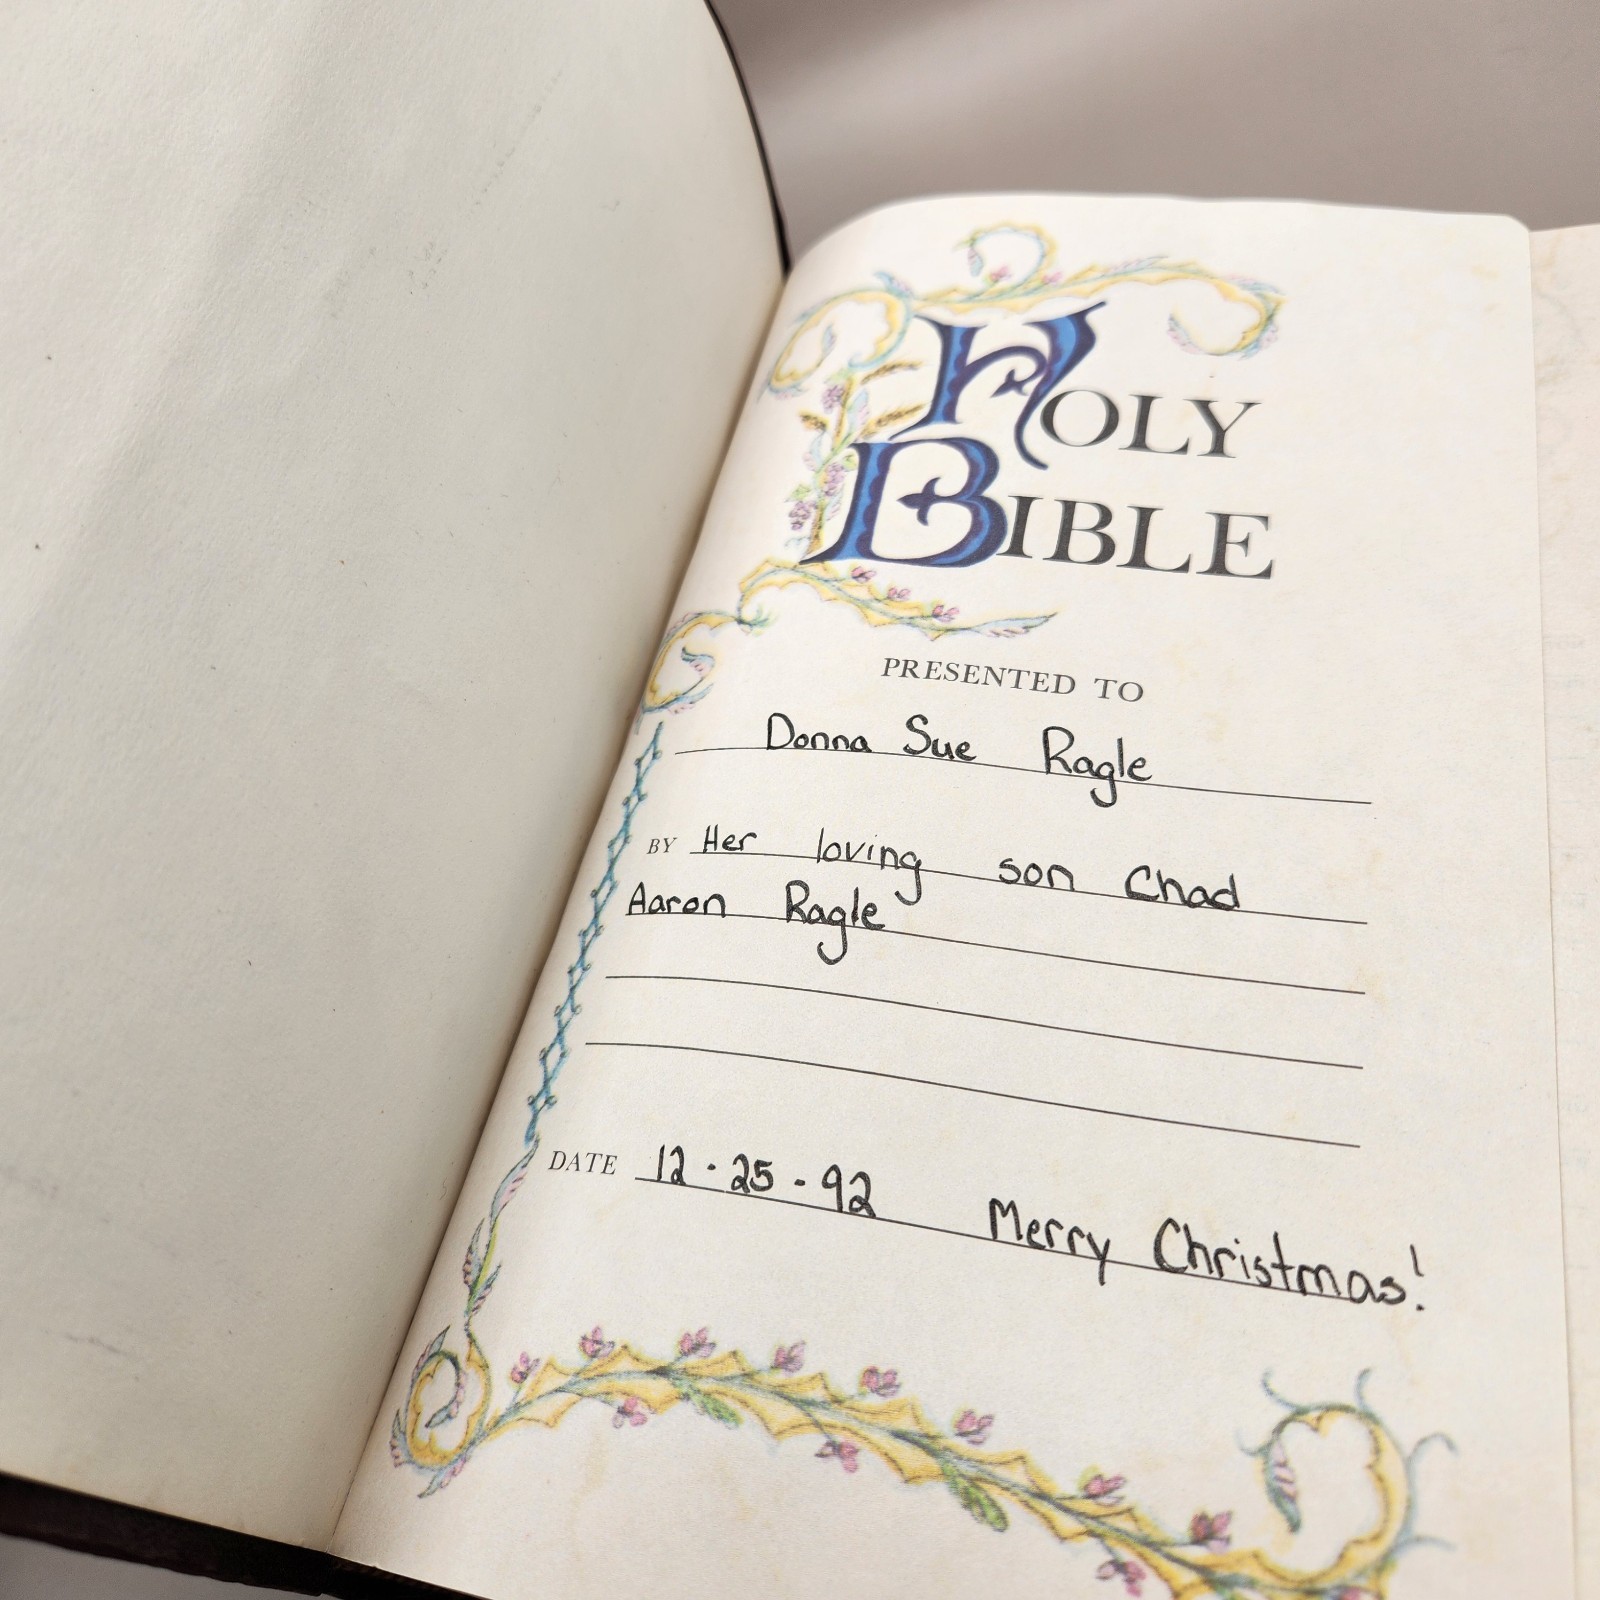 HOLY
BIBLE
PRESENTED TO
Donna Sue Ragle
BY Her loving son Chad
Aaron Ragle
DATE 12 · 25 · 92 Merry Christmas!